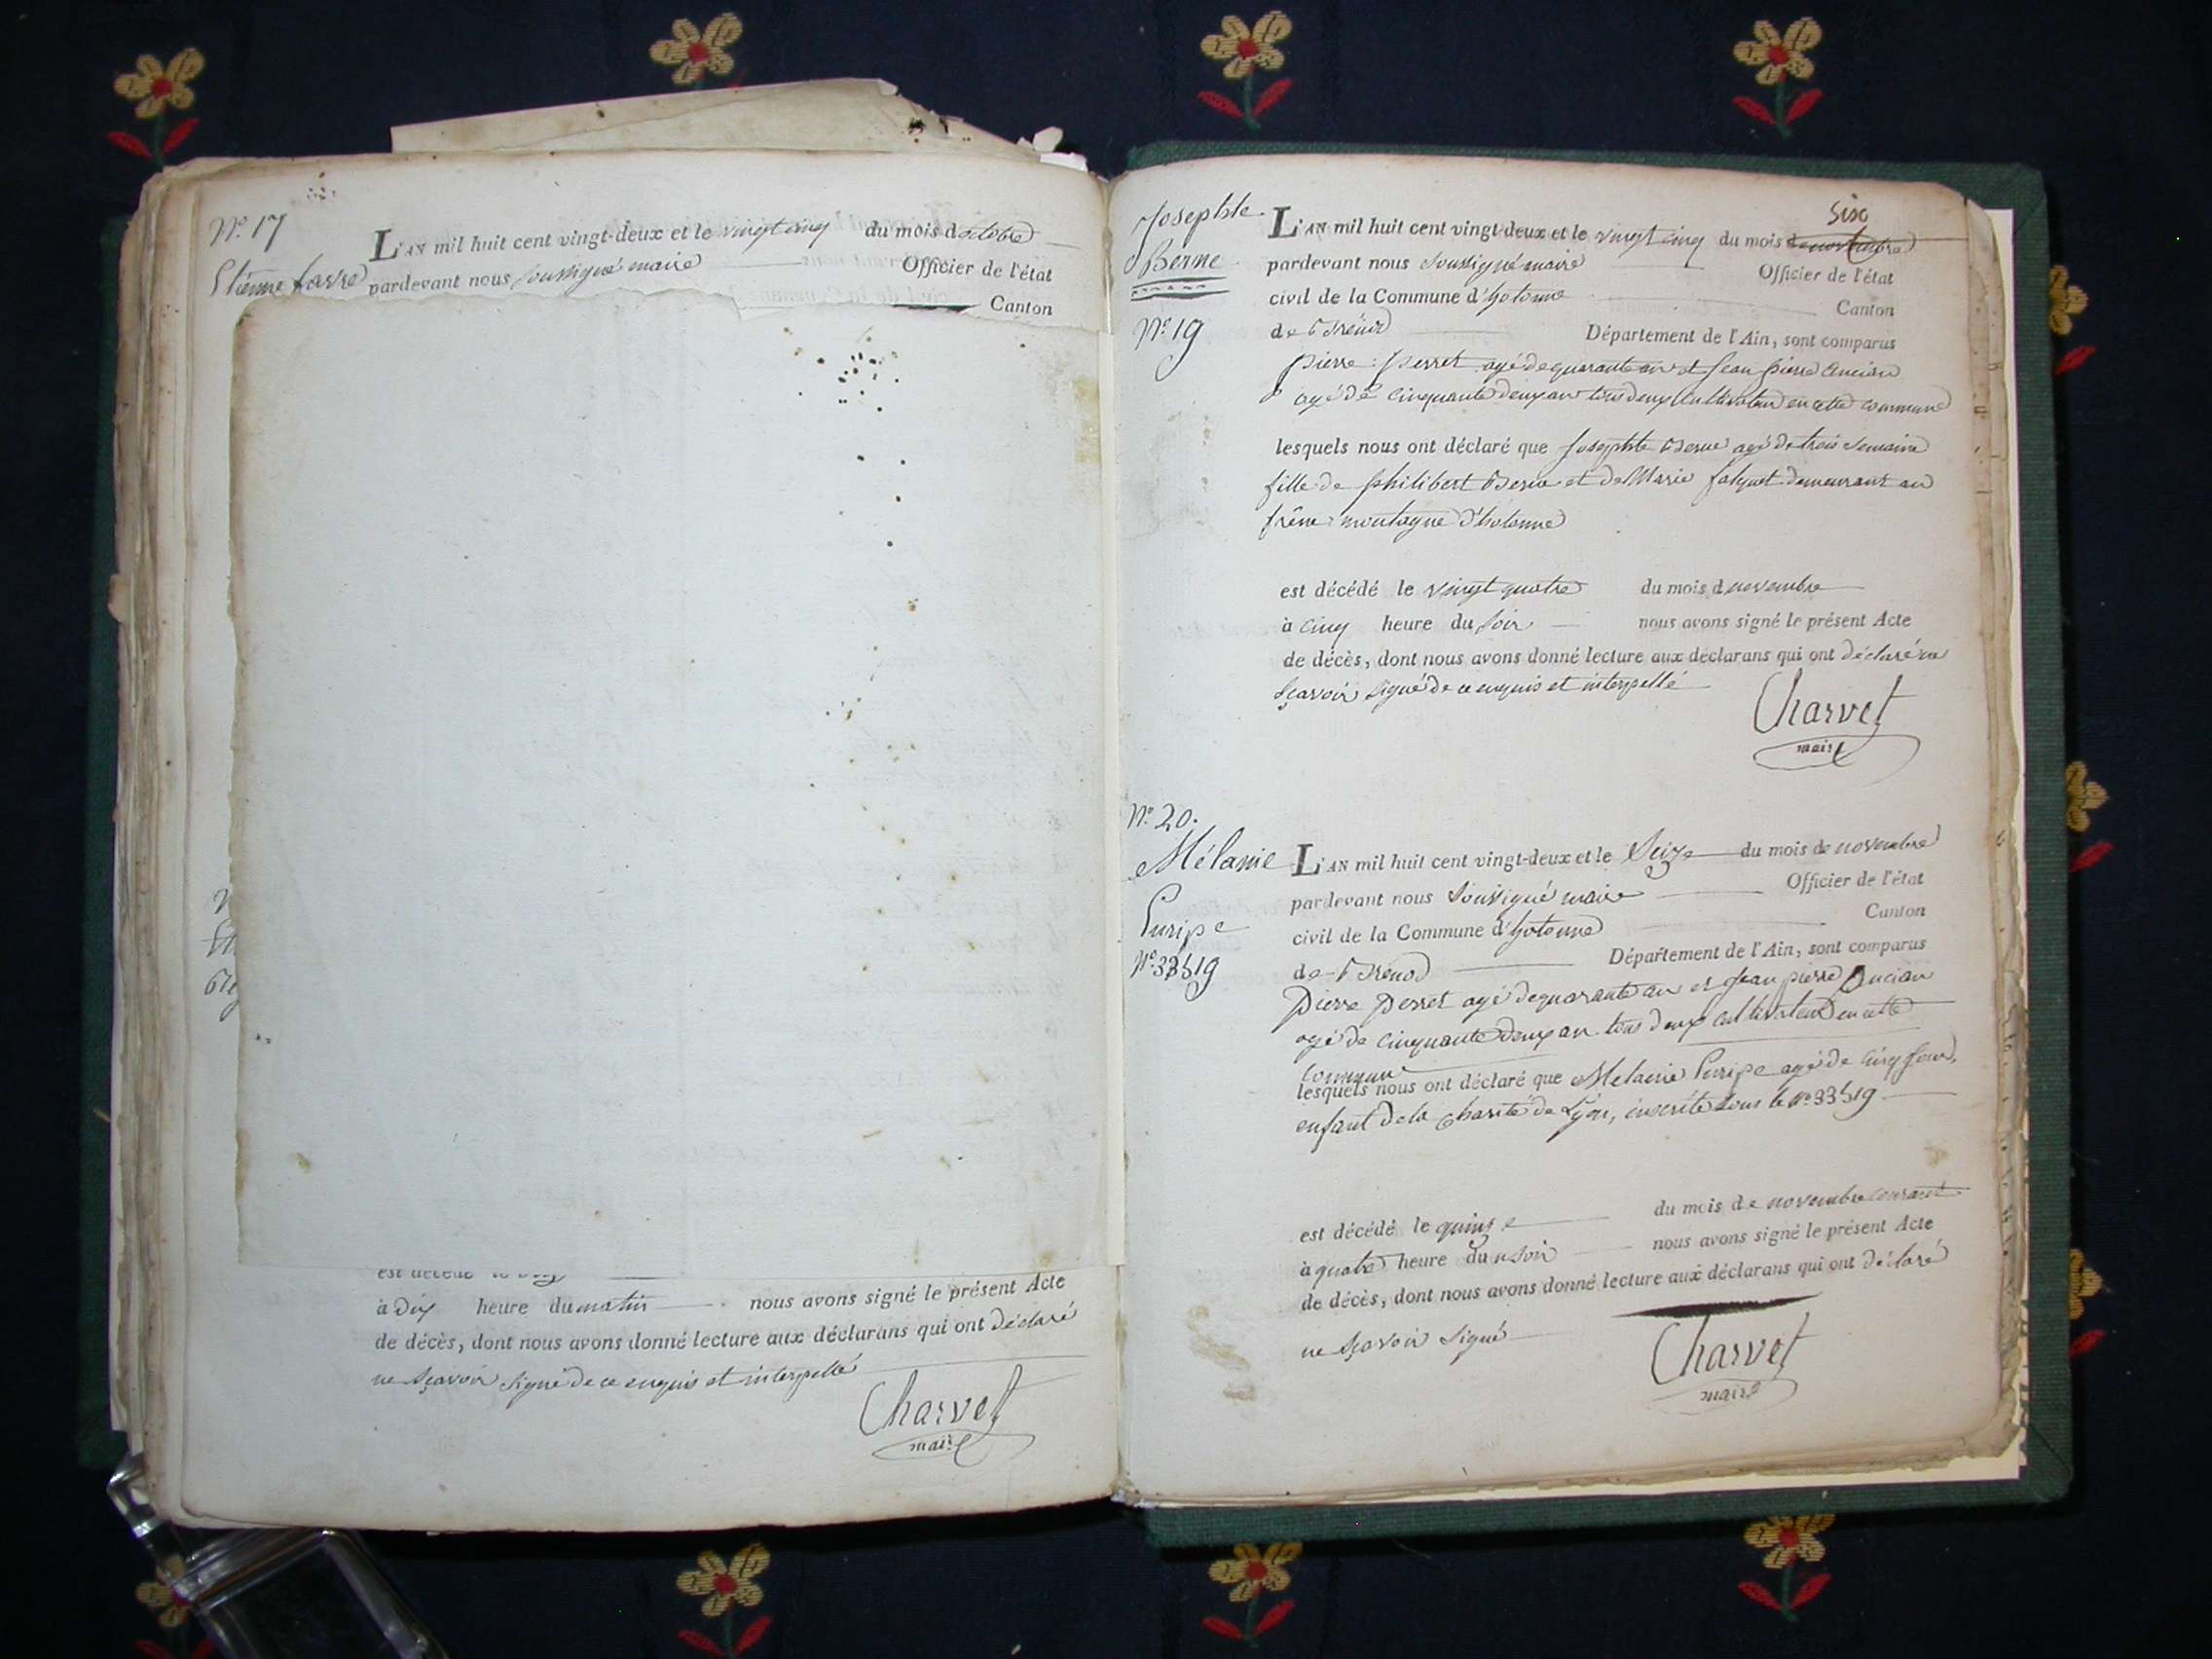 N.° 17
Etienne favre
L'AN mil huit cent vingt-deux et le vingt cinq du mois doctobre
pardevant nous soussigné maire Officier de l'état
Canton
à dix heure du matin nous avons signé le présent Acte
de décès, dont nous avons donné lecture aux déclarans qui ont déclaré
ne sçavoir signé de ce enquis et interpellé
Charvet
maire
six
Josephte
Berne
N.° 19
L'AN mil huit cent vingt-deux et le vingt cinq du mois de novembre
pardevant nous soussigné maire Officier de l'état
civil de la Commune d'hotonne Canton
de Brénod Département de l'Ain, sont comparus
pierre perret agé de quarante an et jean pierre ancian
agé de cinquante deux an tous deux cultivateur en cette commune
lesquels nous ont déclaré que josephte Berne agé de trois semaine
fille de philibert Berne et de Marie falquet demeurant au
frêne montagne d'hotonne
est décédé le vingt quatre du mois d novembre
à cinq heure du soir nous avons signé le présent Acte
de décès, dont nous avons donné lecture aux déclarans qui ont déclaré ne
sçavoir signé de ce enquis et interpellé
Charvet
maire
N.° 20.
Mélanie
Puripe
N.° 33519
L'AN mil huit cent vingt-deux et le Seize du mois de novembre
pardevant nous soussigné maire Officier de l'état
civil de la Commune d'hotonne Canton
de Brenod Département de l'Ain, sont comparus
Pierre perret agé de quarante an et jean pierre ancian
agé de cinquante deux an tous deux cultivateur en cette
commune
lesquels nous ont déclaré que Melanie Puripe agé de cinq jour,
enfant de la Charité de Lyon, inscrite sous le n° 33519
est décédé le quinze du mois de novembre courant
à quatre heure du soir nous avons signé le présent Acte
de décès, dont nous avons donné lecture aux déclarans qui ont déclaré
ne sçavoir signé
Charvet
maire